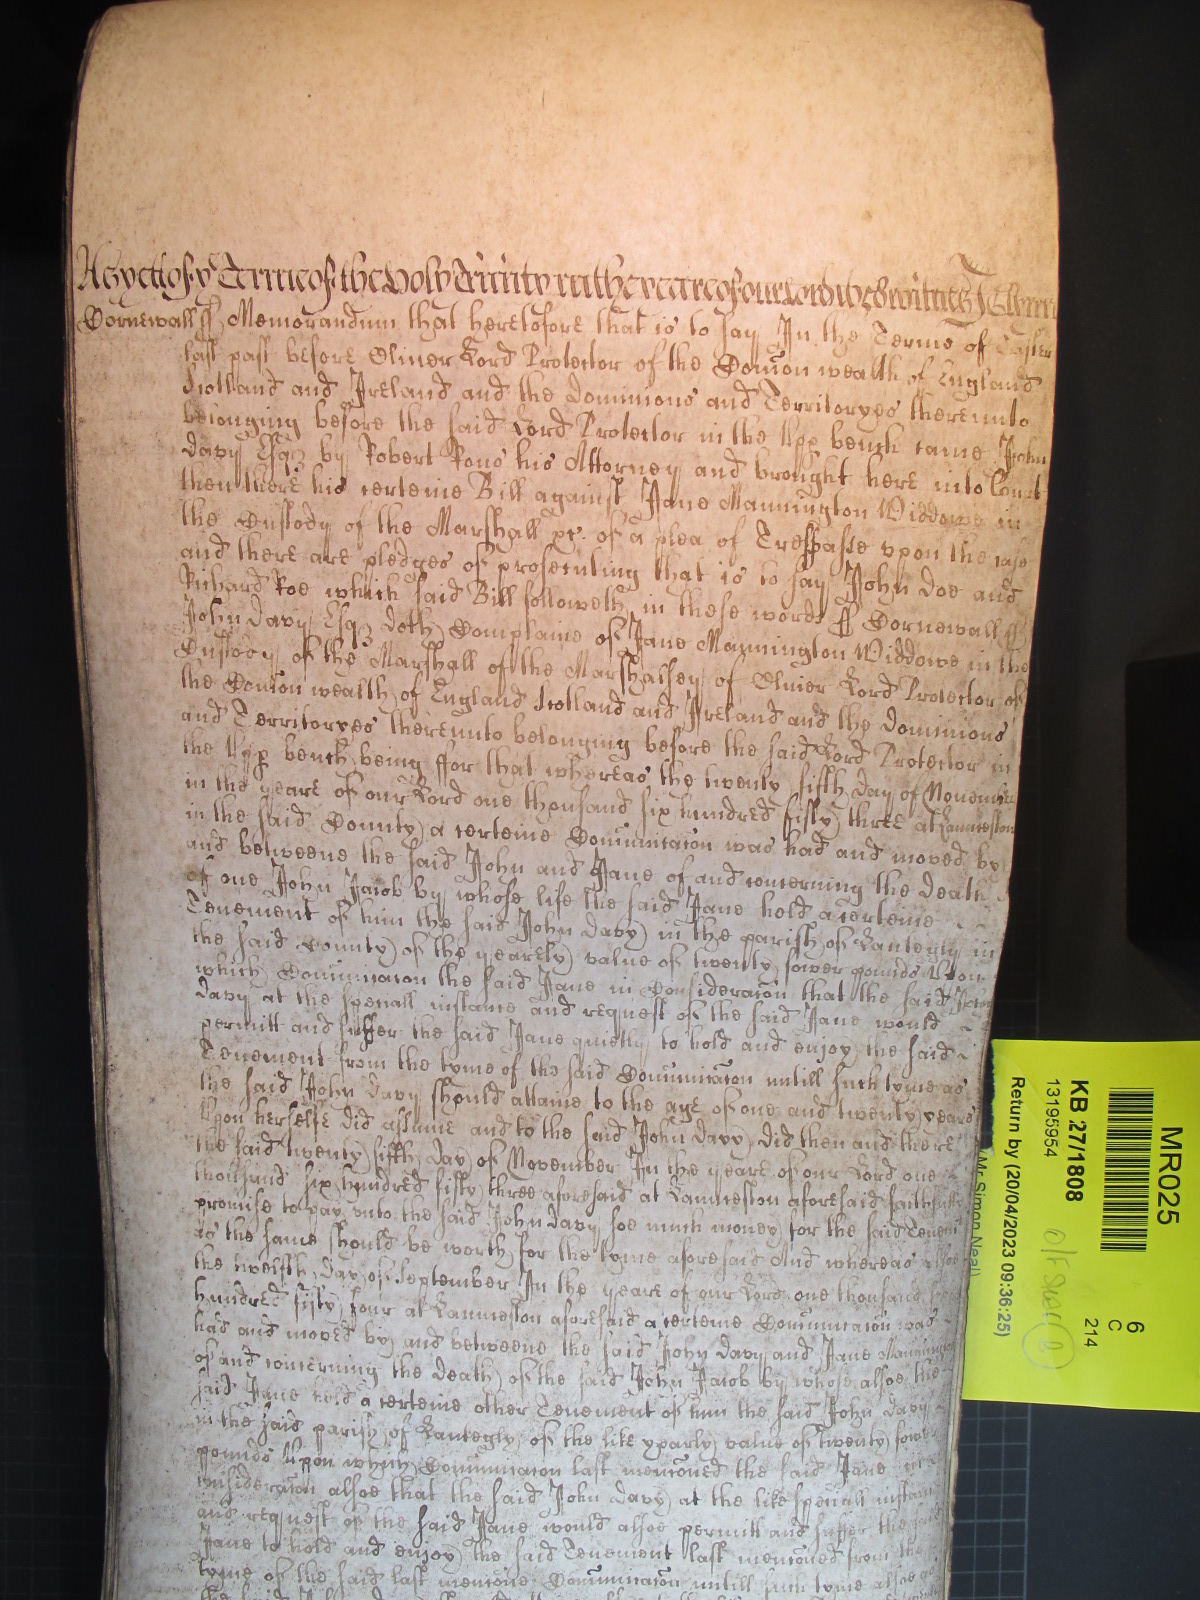 As yet of the Terme of the Holy Trinity in the yeare of our Lord
Cornewall ss Memorandum that heretofore that is to say In the Terme of Easter
last past before Oliver Lord Protector of the Com̄on wealth of England
Scotland and Ireland and the Dominions and Territoryes thereunto
belonging before the said Lord Protector in the Upp bench came John
Davy Esqz by Robert Rous his Attorney and brought here into Court
then there his certeine Bill against Jane Mannington Widdowe in
the Custody of the Marshall &c. of a plea of Trespasse upon the case
and there are pledges of prosecuting that is to say John Doe and
Richard Roe which said Bill followeth in these words ss Cornewall ss
John Davy Esqz doth Complaine of Jane Mannington Widdowe in the
Custody of the Marshall of the Marshalsey of Oliver Lord Protector of
the Com̄on wealth of England Scotland and Ireland and the Dominions
and Territoryes thereunto belonging before the said Lord Protector in
the Upp bench being ffor that whereas the twenty fifth Day of November
in the yeare of our Lord one thousand six hundred fifty three at Lanceston
in the said County a certeine Com̄unicac̄on was had and moved by
and betweene the said John and Jane of and concerning the death
of one John Jacob by whose life the said Jane held a certeine
Tenement of him the said John Davy in the parish of Lantegly in
the said County of the yearely value of twenty fower pounds Upon
which Com̄unicac̄on the said Jane in Considerac̄on that the said John
Davy at the speciall instance and request of the said Jane would
permitt and suffer the said Jane quietly to hold and enjoy the said
Tenement from the tyme of the said Com̄unicac̄on untill such tyme as
the said John Davy should attaine to the age of one and twenty yeares
Upon herselfe did assume and to the said John Davy did then and there
the said twenty fifth Day of November In the yeare of our Lord one
thousand six hundred fifty three aforesaid at Lanceston aforesaid faithfully
promise to pay unto the said John Davy soe much money for the said Tenemt
as the same should be worth for the tyme aforesaid And whereas alsoe
the twelfth Day of September In the yeare of our Lord one thousand six
hundred fifty four at Lanceston aforesaid a certeine Com̄unicac̄on was
had and moved by and betweene the said John Davy and Jane Mannington
of and concerning the death of the said John Jacob by whose alsoe the
said Jane held a certeine other Tenement of him the said John Davy
in the said parish of Lantegly of the like yearly value of twenty fower
pounds Upon which Com̄unicac̄on last menc̄oned the said Jane in
Considerac̄on alsoe that the said John Davy at the like speciall instance
and request of the said Jane would alsoe permitt and suffer the said
Jane to hold and enjoy the said Tenement last menc̄oned from the
tyme of the said last menc̄one Com̄unicac̄on untill such tyme alsoe as
MR025
6
C
214
KB 27/1808
13195954
Return by (20/04/2023 09:36:25)
(Mr Simon Neal)